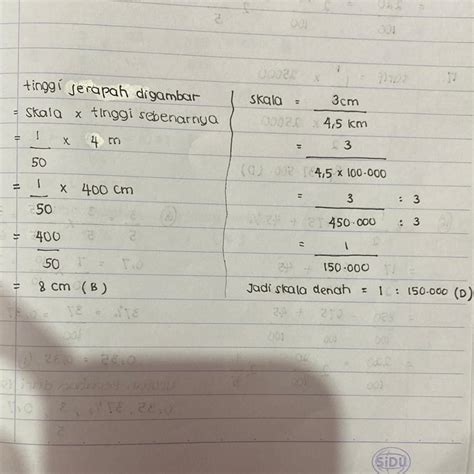 tinggi jerapah digambar
= skala x tinggi sebenarnya
= 1/50 x 4 m
= 1/50 x 400 cm
= 400/50
= 8 cm (B)
skala = 3cm/4,5 km
= 3/4,5 x 100.000
= 3/450.000 : 3 : 3
= 1/150.000
Jadi skala denah = 1 : 150.000 (D)
SiDU